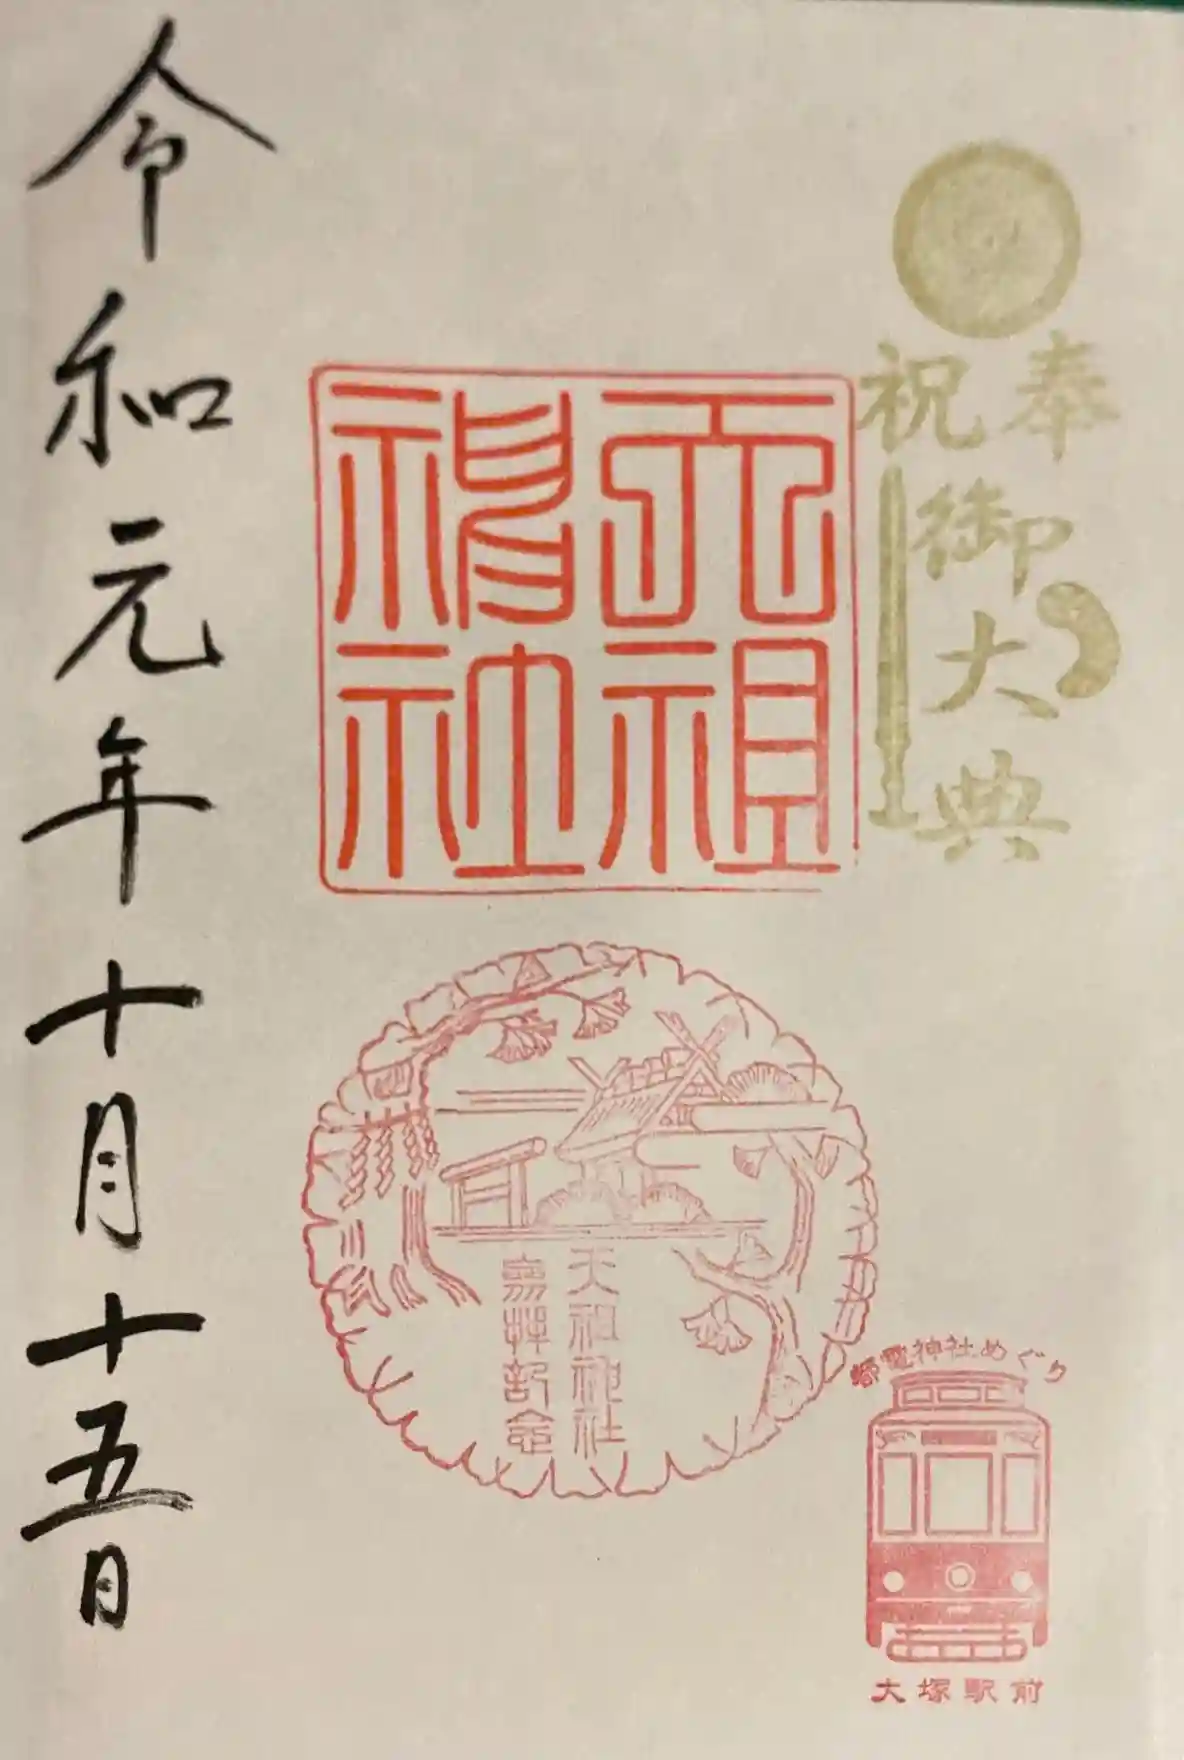 奉祝
御大典
天祖
神社
天祖神社
参拝記念
都電神社めぐり
大塚駅前
令和元年十月十五日